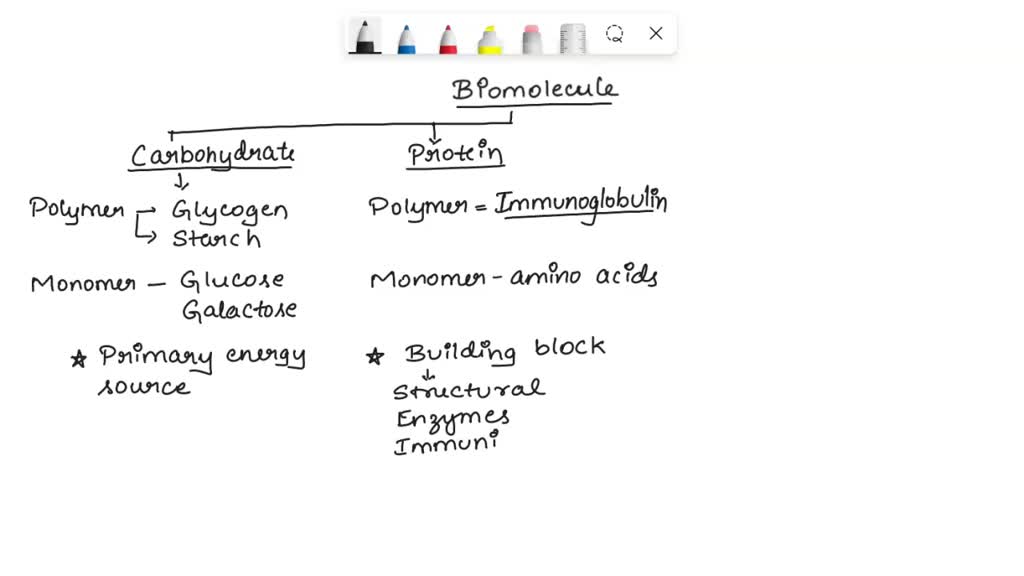 Biomolecule
Carbohydrate
Protein
Polymer → Glycogen
→ Starch
Monomer – Glucose
Galactose
☆ Primary energy
source
Polymer = Immunoglobulin
Monomer – amino acids
☆ Building block
↓
Structural
Enzymes
Immuni